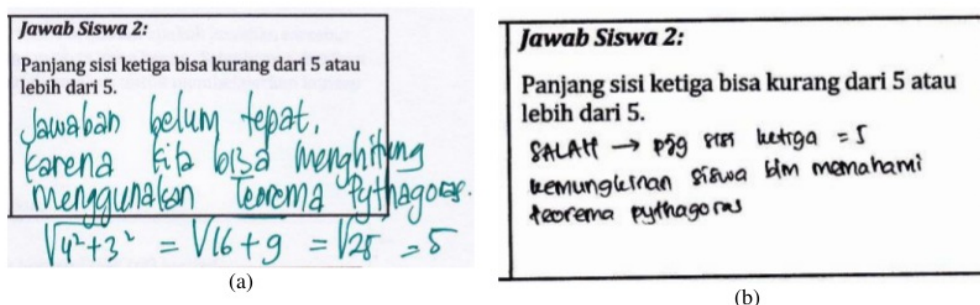 Jawab Siswa 2:
Panjang sisi ketiga bisa kurang dari 5 atau
lebih dari 5.
Jawaban belum tepat,
karena kita bisa menghitung
menggunakan Teorema Pythagoras.
√4²+3² = √16+9 = √25 = 5
(a)
Jawab Siswa 2:
Panjang sisi ketiga bisa kurang dari 5 atau
lebih dari 5.
SALAH → pjg sisi ketiga = 5
kemungkinan siswa blm memahami
teorema pythagoras
(b)